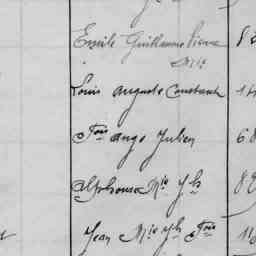 Emile Guillaume Pierre
Mie
Louis Auguste Constant
Fois Ange Julien
68
Alphonse Mie Jh
Jean Mie Jh Fois